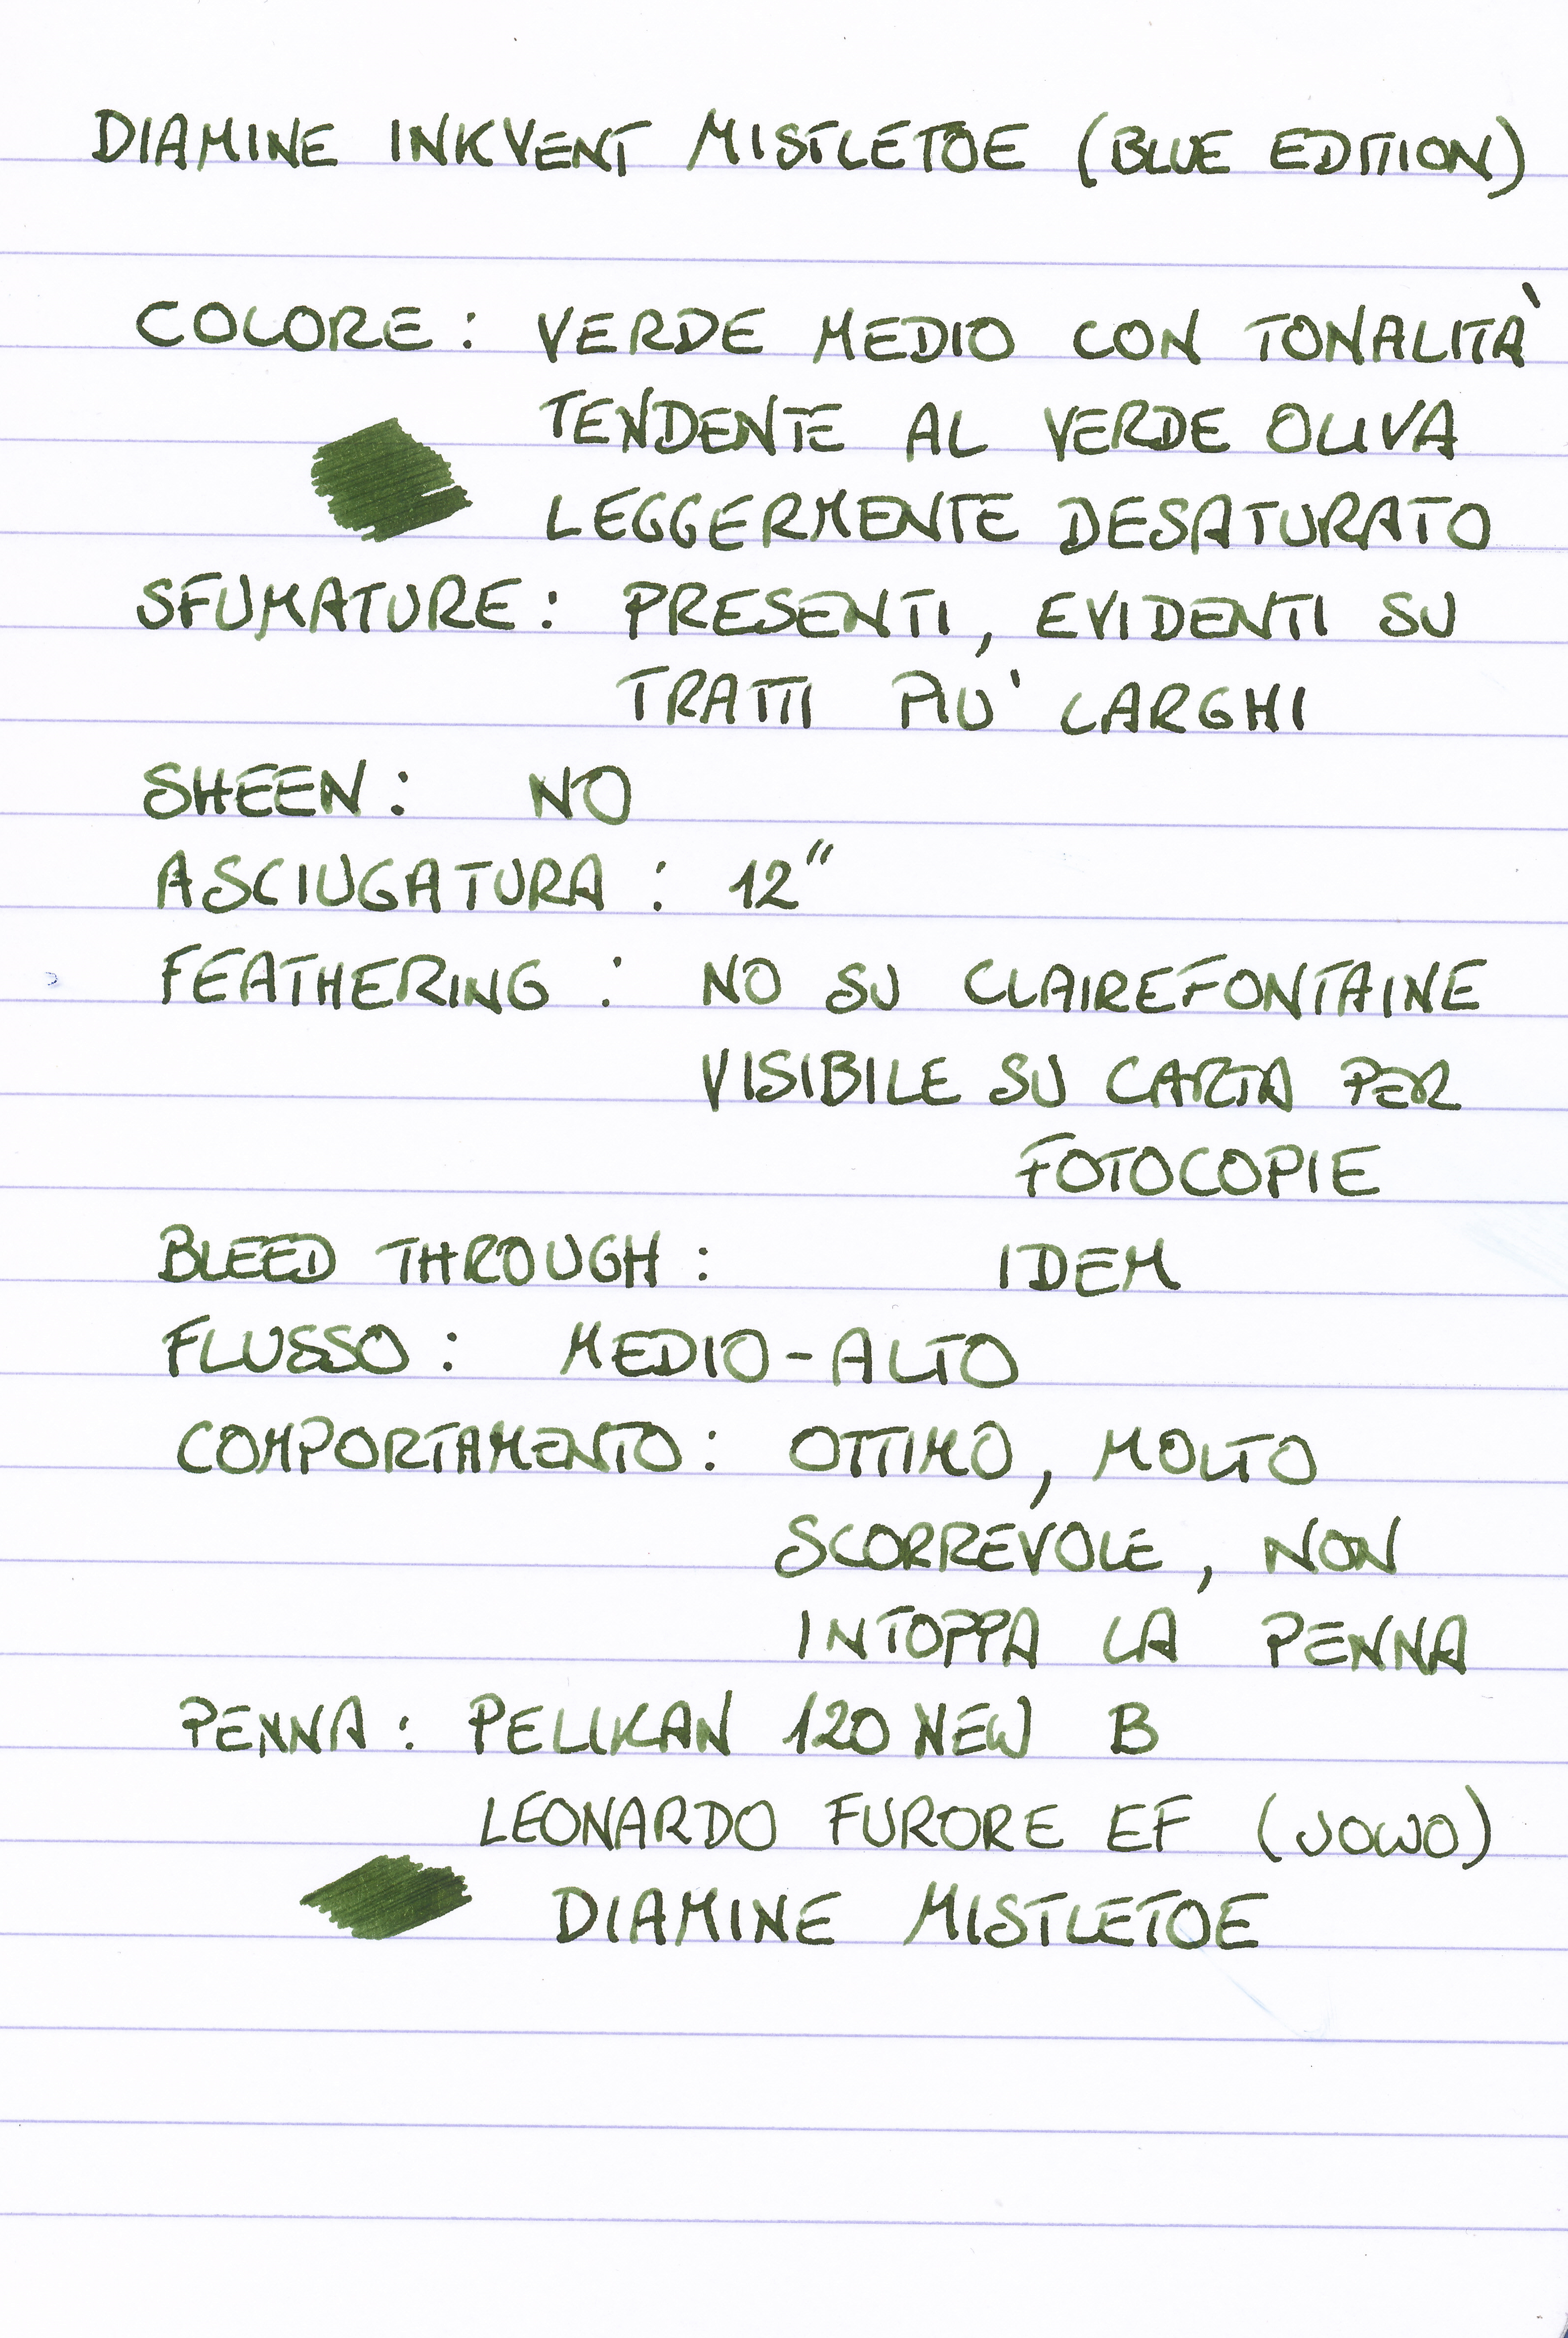 DIAMINE INKVENT MISTLETOE (BLUE EDITION)
COLORE: VERDE MEDIO CON TONALITÀ
TENDENTE AL VERDE OLIVA
LEGGERMENTE DESATURATO
SFUMATURE: PRESENTI, EVIDENTI SU
TRATTI PIU' LARGHI
SHEEN: NO
ASCIUGATURA: 12"
FEATHERING: NO SU CLAIREFONTAINE
VISIBILE SU CARTA PER
FOTOCOPIE
BLEED THROUGH: IDEM
FLUSSO: MEDIO-ALTO
COMPORTAMENTO: OTTIMO, MOLTO
SCORREVOLE, NON
INTOPPA LA PENNA
PENNA: PELIKAN 120 NEW B
LEONARDO FURORE EF (JOWO)
DIAMINE MISTLETOE